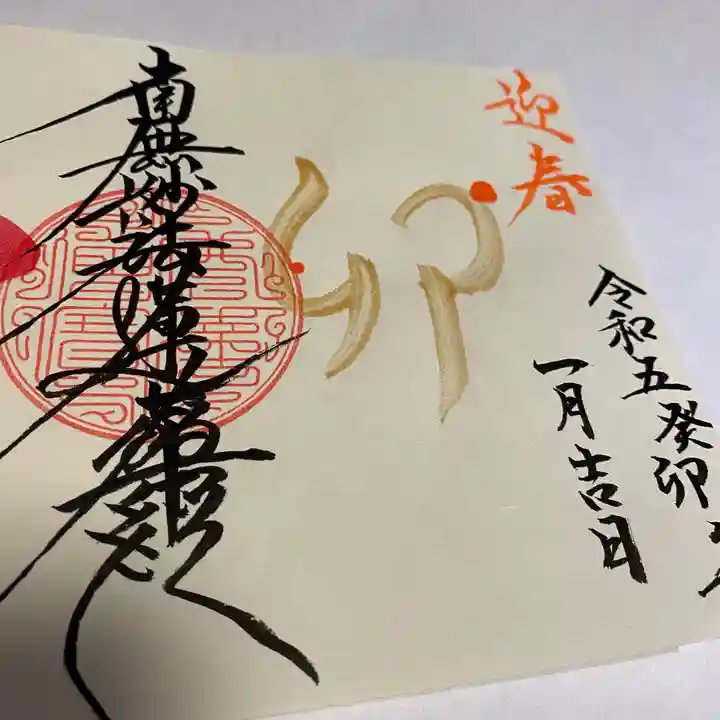 迎春
令和五癸卯年
一月吉日
卯
南無妙法蓮華経